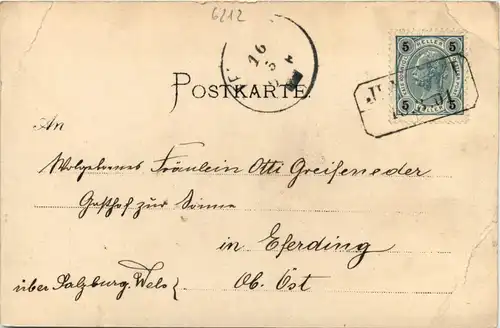 6212
16
3
5 HELLER 5
5 5
POSTKARTE.
An
Wolgeborenes Fräulein Otti Greifeneder
Gasthof zur Sonne
in Eferding
über Salzburg. Wels { Ob. Öst